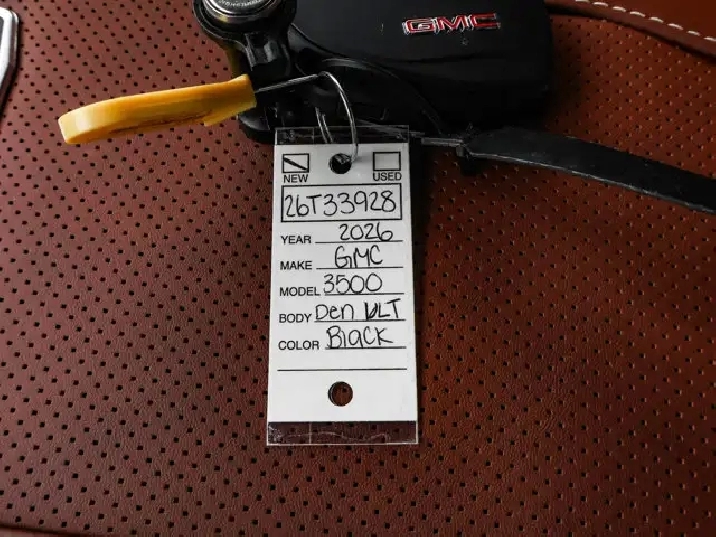 GMC
NEW USED
26T33928
YEAR 2026
MAKE GMC
MODEL 3500
BODY Den ULT
COLOR Black